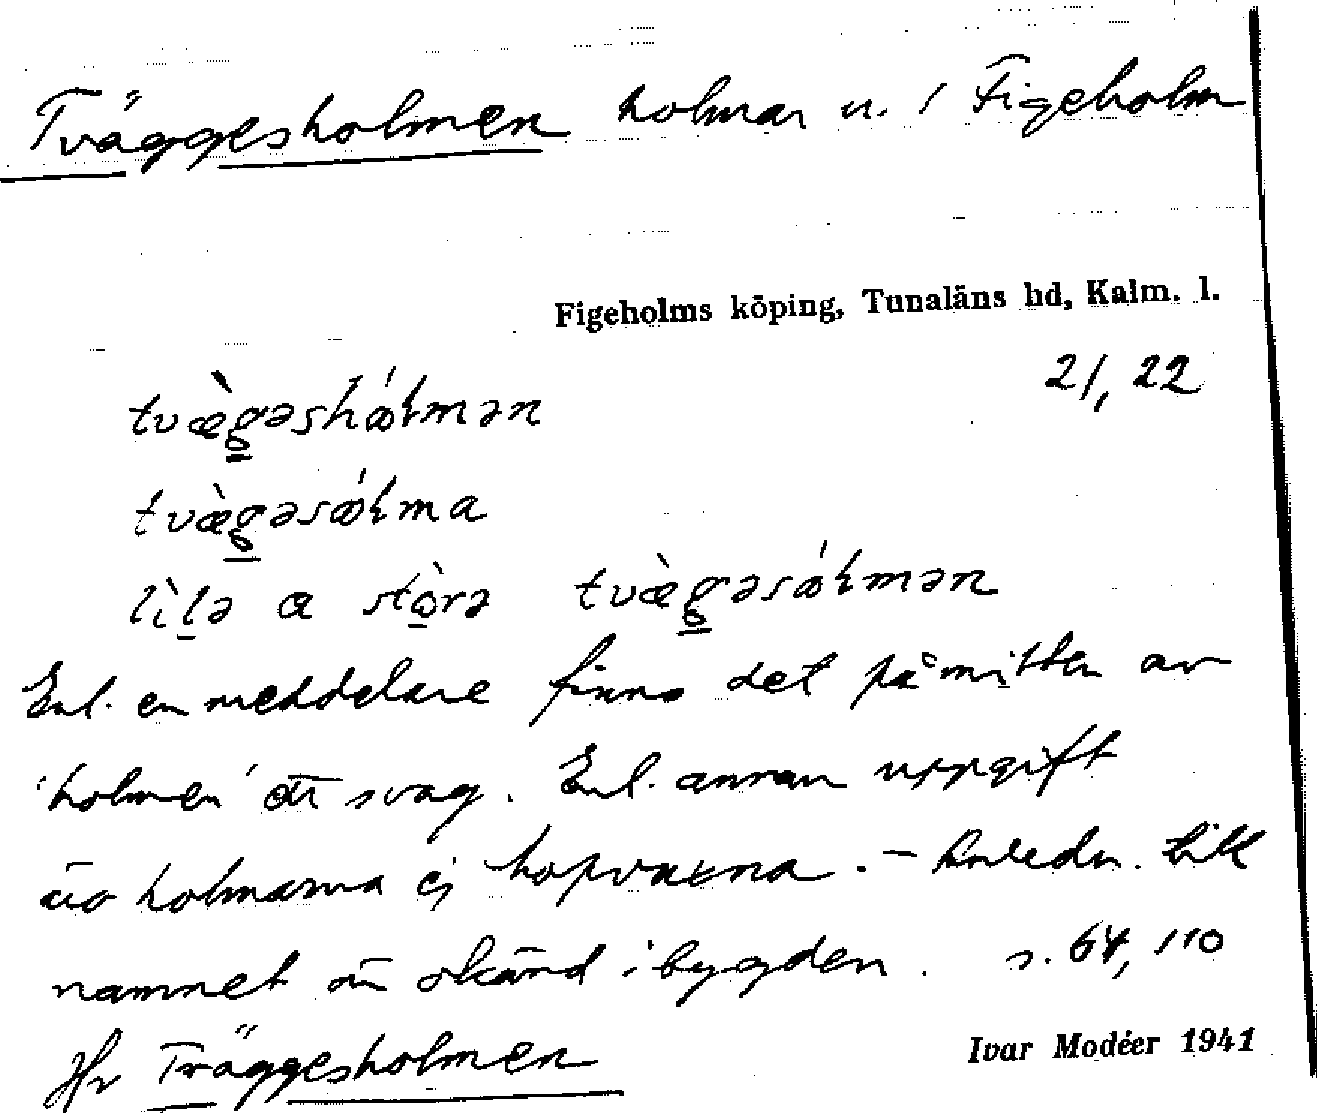 Tväggesholmen holmar n. / Figeholm
Figeholms köping, Tunaläns hd, Kalm. l.
21, 22
tvæ̀gəshǿɫmən
tvæ̀gəsǿɫma
lìlə a stòrə tvæ̀gəsǿɫmən
Enl. en meddelare finns det på mitten av
'holmen' ett svag. Enl. annan uppgift
äro holmarna ej hopvuxna. – Anledn. till
namnet är okänd i bygden. s. 64, 110
Hr Träggesholmen
Ivar Modéer 1941